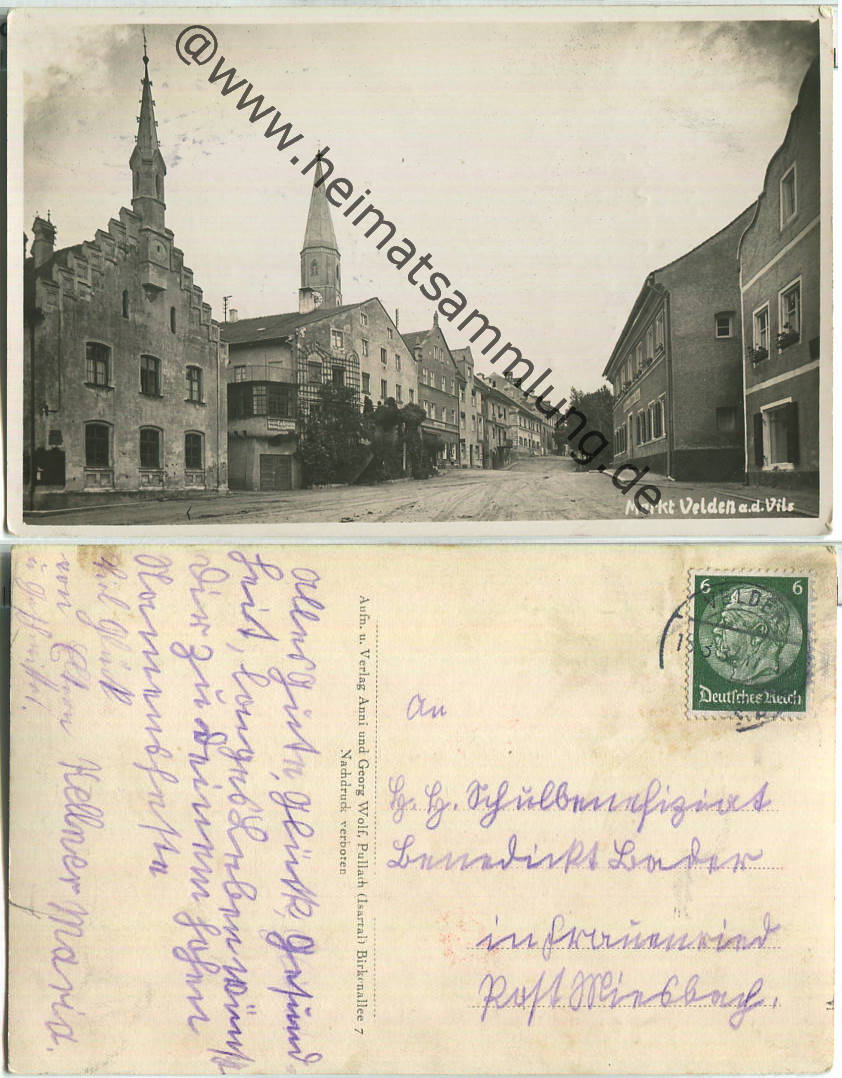 @www.heimatsammlung.de
Markt Velden a.d. Vils
Alles Gute, Glück, Gesund-
heit, langes Leben wünscht
Dir zu Deinem hohen
Namensfeste
Kellner Maria.
viel Glück
von
Aufn. u. Verlag Anni und Georg Wolf, Pullach (Isartal) Birkenallee 7
Nachdruck verboten
6 6
Deutsches Reich
VELDEN
An
H. H. Schulbenefiziat
Benedickt Bader
in Frauenried
Post Miesbach.